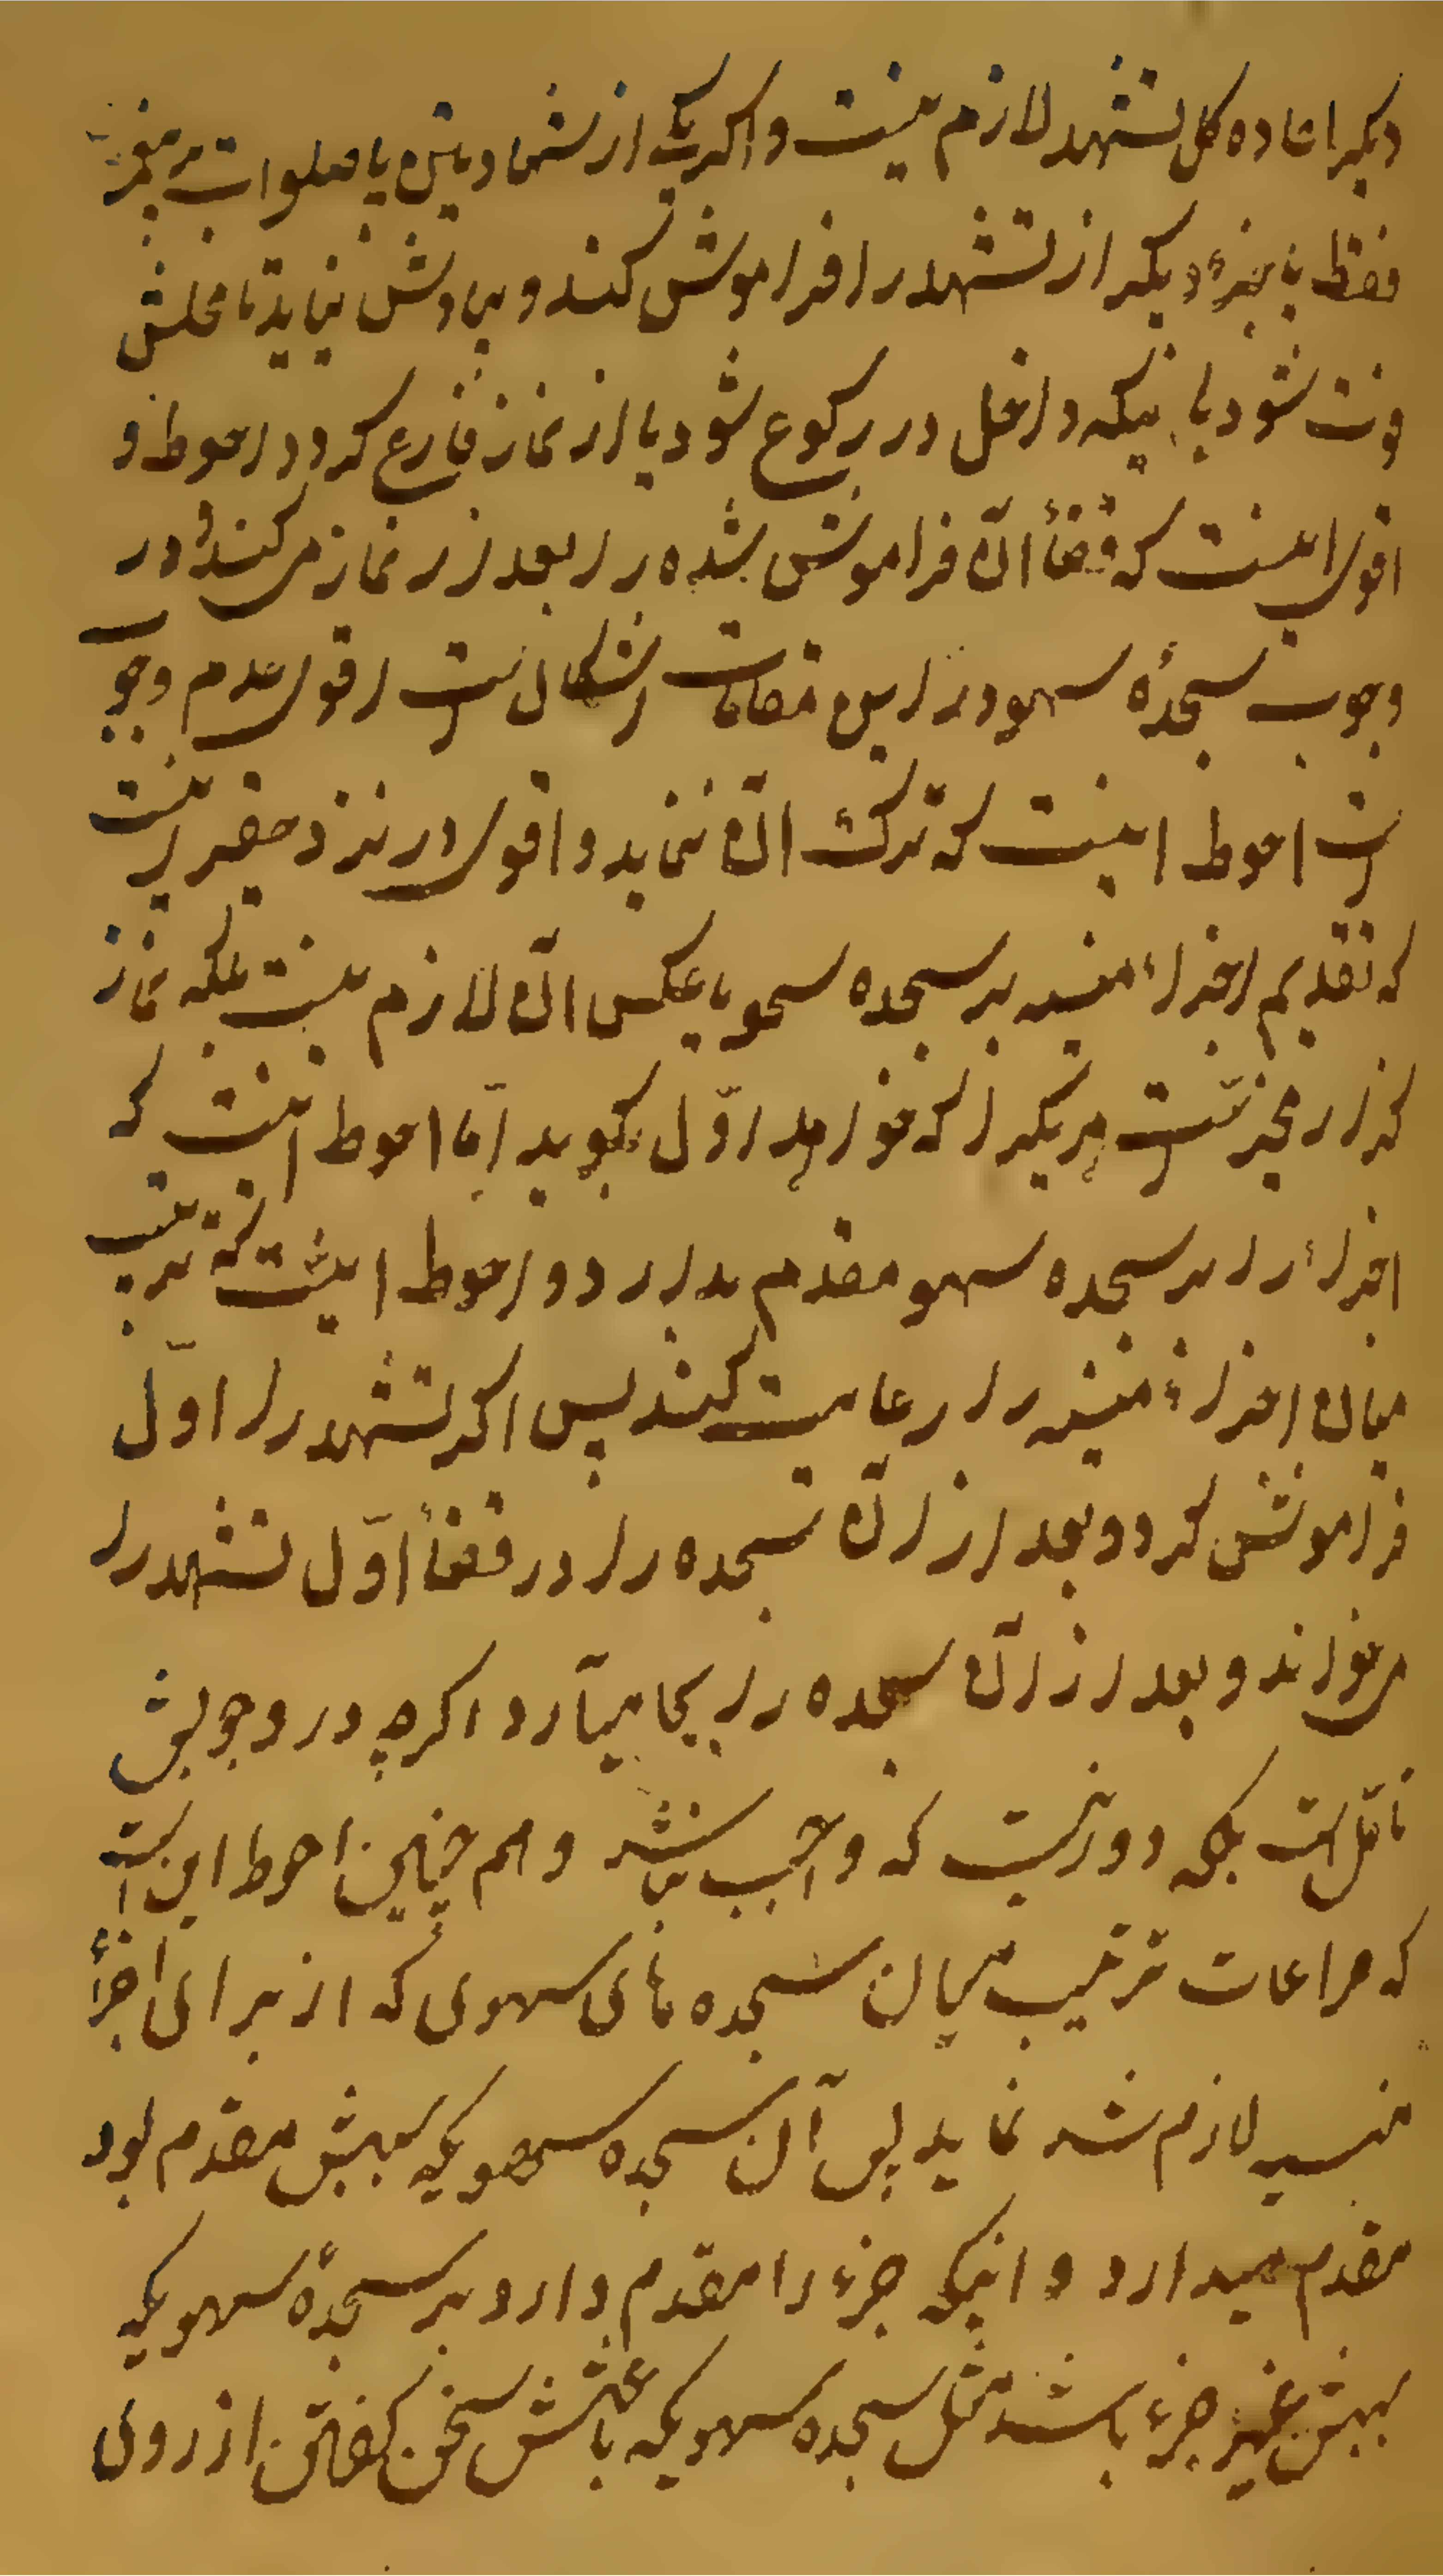 دیگر اعاده کل تشهد لازم نیست و اگر یکی از شهادتین یا صلوات بر پیغمبر
فقط یا جزء دیگر از تشهد را فراموش کند و بیادش نیاید تا محلش
فوت شود با اینکه داخل در رکوع شود یا از نماز فارغ گردد احوط و
اقوی اینست که قضأ آن فراموش شده را بعد از نماز می کند و در
وجوب سجدهٔ سهو در این مقامات اشکال است اقوی عدم وجوب
است احوط اینست که ترک آن ننماید و اقوی در نزد حقیر اینست
که تقدیم اجزاء منسیه بر سجده سهو یا عکس آن لازم نیست بلکه نماز
گذار مخیر است هر یکی را که خواهد اول بگوید اما احوط اینست که
اجزاء را بر سجده سهو مقدم بدارد و احوط اینست که ترتیب
میان اجزاء منسیه را رعایت کند پس اگر تشهد را اول
فراموش کرد و بعد از آن سجده را در قضأ اول تشهد را
می خواند و بعد از آن سجده را بجا میآرد اگر چه در وجوبش
تامّل است بلکه دور نیست که واجب نباشد و هم چنین احوط این است
که مراعات ترتیب میان سجده های سهوی که از برای اجزأ
منسیه لازم شد نماید پس آن سجده سهویکه سببش مقدم بود
مقدم میدارد و اینکه جزء را مقدم دارد بر سجدهٔ سهویکه
سببش غیر جزء باشد مثل سجده سهویکه باعثش سخن گفتن از روی